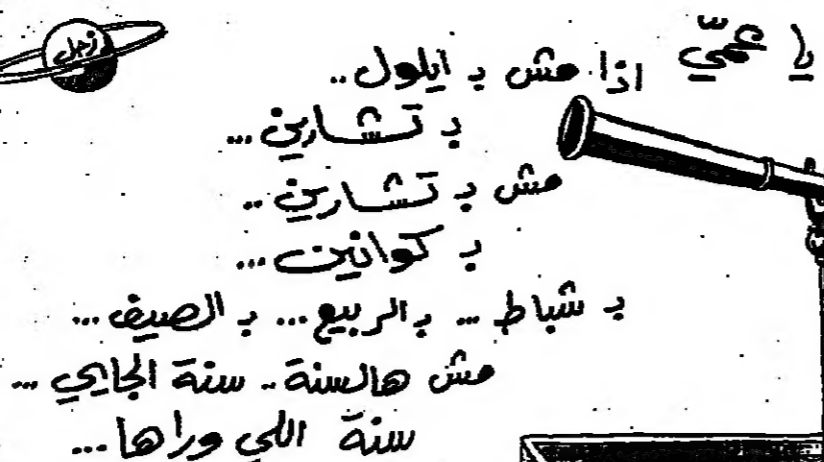 زحل
يا عمّي اذا مش بـ ايلول..
بـ تشارين...
مش بـ تشارين..
بـ كوانين...
بـ شباط... بـ الربيع... بـ الصيف...
مش هالسنة.. سنة الجايي...
سنة اللي وراها...